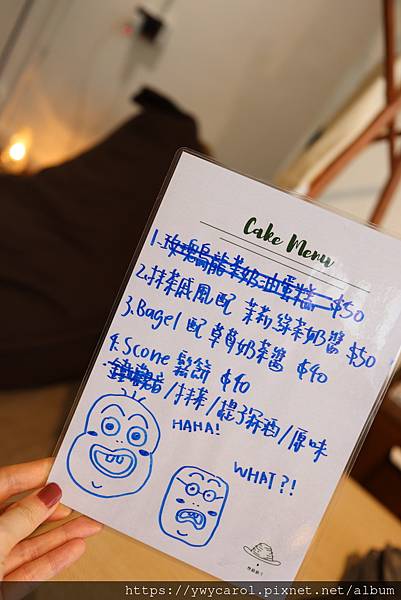 Cake Menu
1.玫瑰烏龍茶奶油蛋糕 $50
2.抹茶戚風配 茉莉綠茶奶醬 $50
3.Bagel 配 草莓奶茶醬 $40
4.Scone 鬆餅 $40
鐵觀音/抹茶/提子菸酒/原味
HAHA!
WHAT?!
https://ywycarol.pixnet.net/album